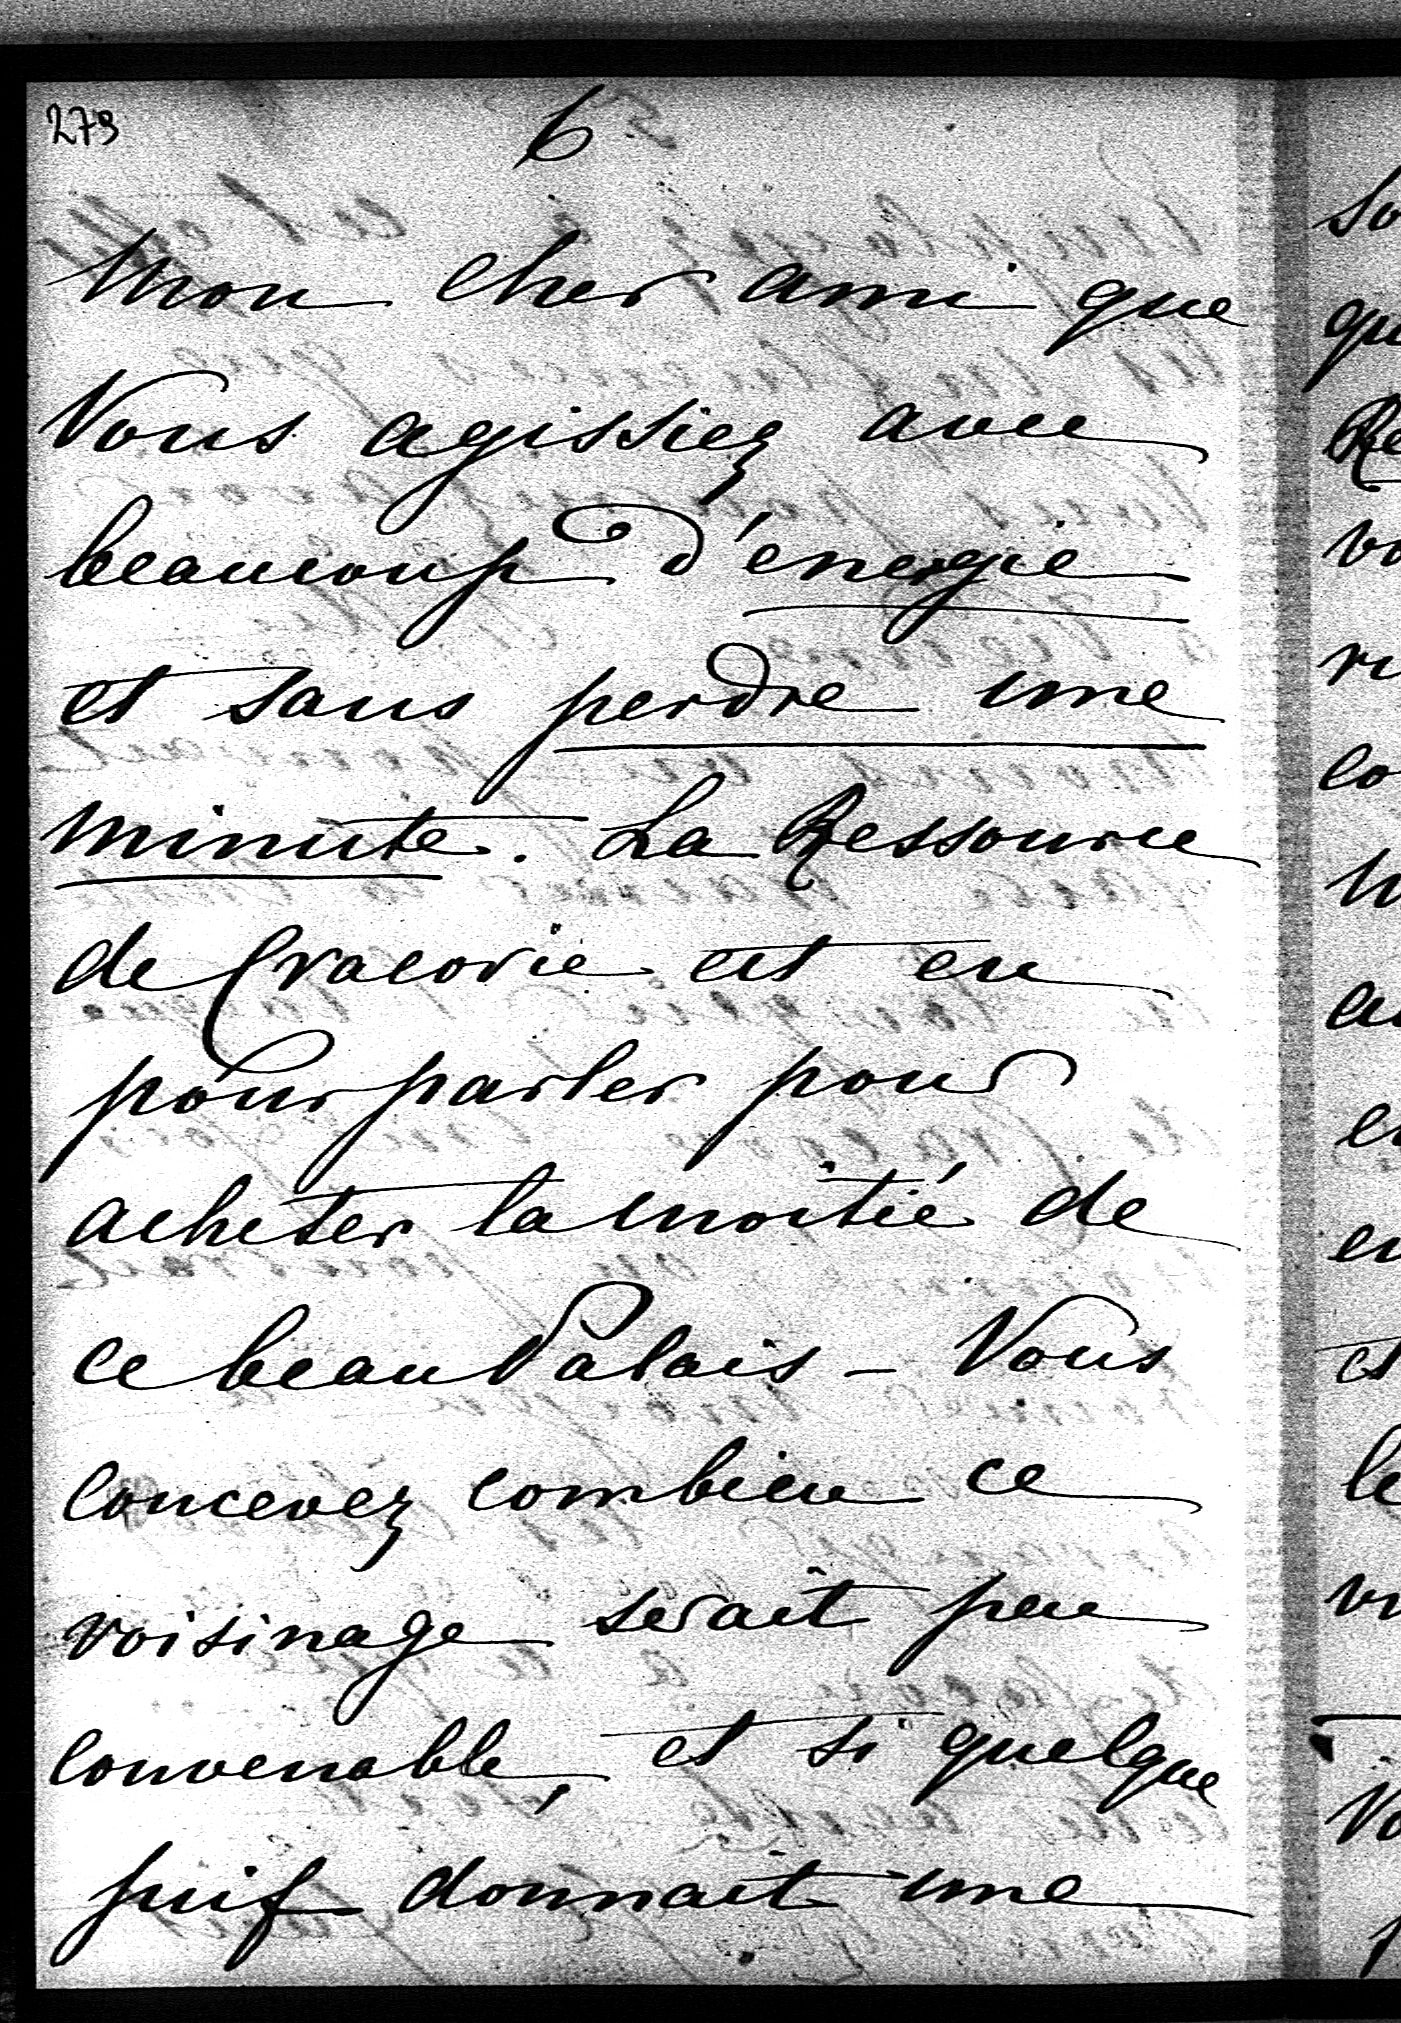 279
6
Mon cher ami que
Vous agissiez avec
beaucoup d'energie
et sans perdre une
minute. La Ressource
de Cracovie est en
pourparler pour
acheter la moitié de
ce beau Palais – Vous
concevez combien ce
voisinage serait peu
convenable, et si quelque
juif donnait une